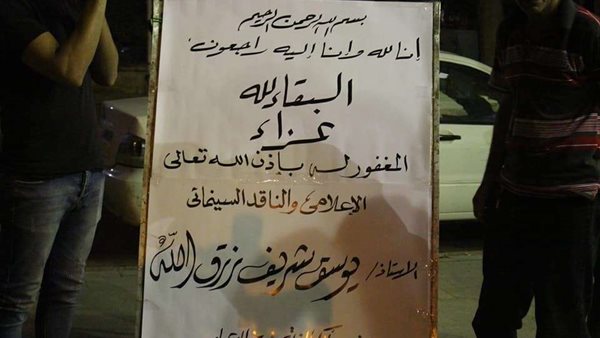 بسم الله الرحمن الرحيم
إنا لله وإنا إليه راجعون
البقاء لله
عزاء
المغفور له بإذن الله تعالى
الإعلامي والناقد السينمائي
الاستاذ/ يوسف شريف رزق الله